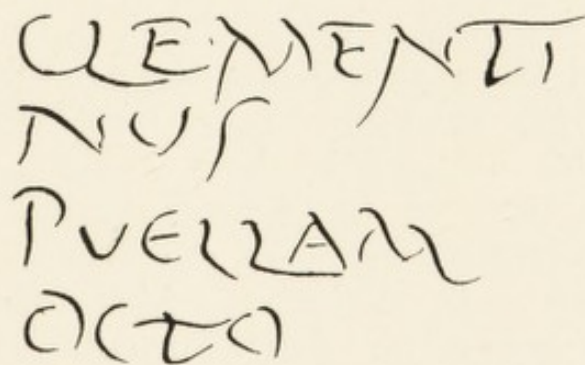 CLEMENTI
NUS
PUELLAM
OCTO